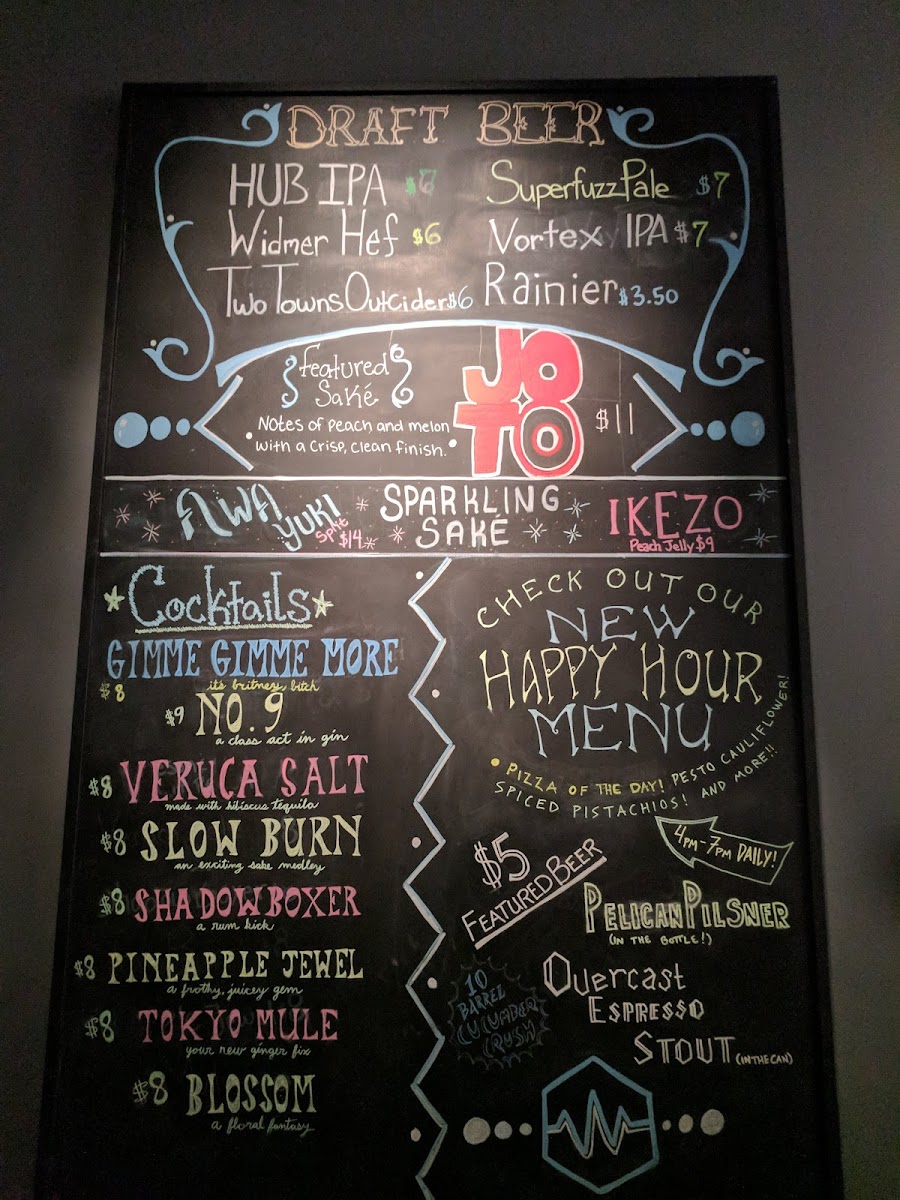 DRAFT BEER
HUB IPA
Widmer Hef $6
Two Towns Outcider $6
Superfuzz Pale $7
Vortex IPA $7
Rainier $3.50
Featured
Saké
Notes of Peach and melon
with a Crisp, clean finish.
JO
TO
$11
AWA
YUKI
Splt
$14
SPARKLING
SAKÉ
IKEZO
Peach Jelly $9
Cocktails
GIMME GIMME MORE
$8
it's britney bitch
$9 NO. 9
a class act in gin
$8 VERUCA SALT
made with hibiscus tequila
$8 SLOW BURN
an exciting sake medley
$8 SHADOWBOXER
a rum kick
$8 PINEAPPLE JEWEL
a frothy, juicey gem
$8 TOKYO MULE
your new ginger fix
$8 BLOSSOM
a floral fantasy
CHECK OUT OUR
NEW
HAPPY HOUR
MENU
• PIZZA OF THE DAY! PESTO CAULIFLOWER!
SPICED PISTACHIOS! AND MORE!!
4PM-7PM DAILY!
$5
FEATURED BEER
PELICAN PILSNER
(IN THE BOTTLE!)
Overcast
ESPRESSO
STOUT (IN THE CAN)
10
BARREL
CUCUMBER
CRUSH